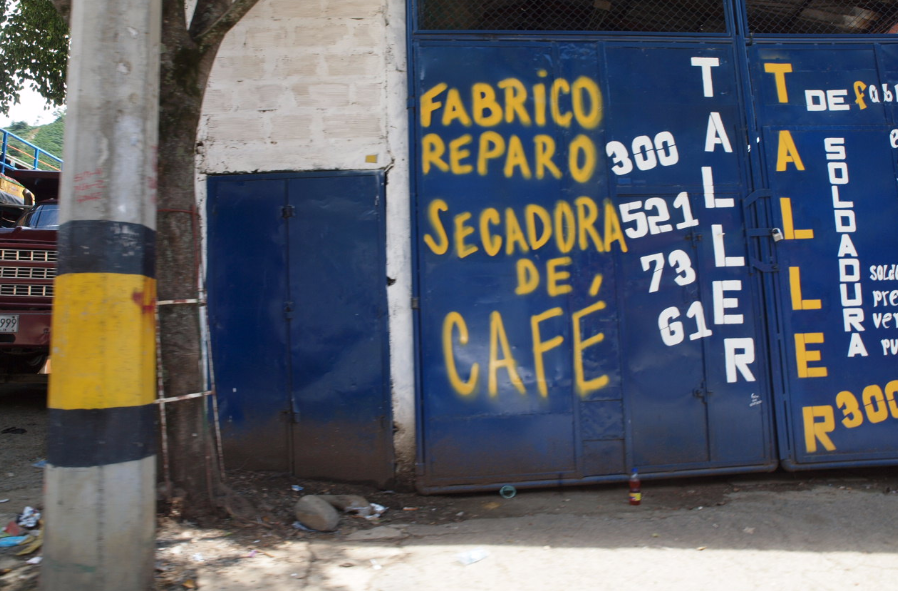 FABRiCO
REPARO
SECADORA
DE
CAFÉ
300
521
73
61
TALLER
TALLER
DE
SOLDADURA
300
999